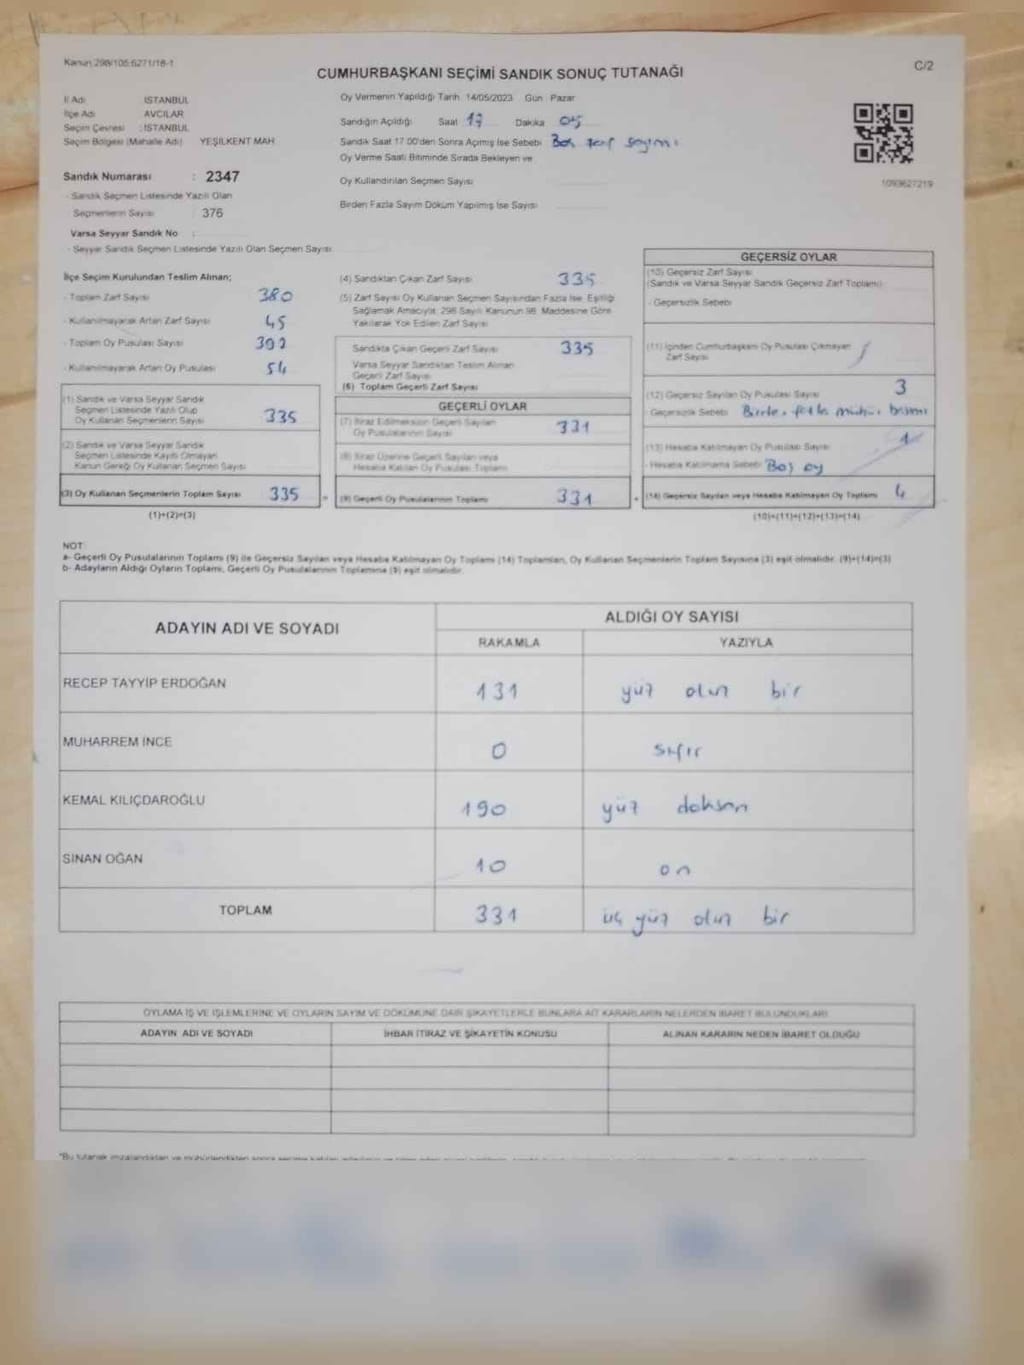 Kanun 298/105:6271/18-1
C/2
CUMHURBAŞKANI SEÇİMİ SANDIK SONUÇ TUTANAĞI
İl Adı İSTANBUL
İlçe Adı AVCILAR
Seçim Çevresi : İSTANBUL
Seçim Bölgesi (Mahalle Adı) YEŞİLKENT MAH.
Oy Vermenin Yapıldığı Tarih 14/05/2023 Gün Pazar
Sandığın Açıldığı Saat 17 Dakika 05
Sandık Saat 17.00'den Sonra Açılmış İse Sebebi Boş zarf sayımı
Oy Verme Saati Bitiminde Sırada Bekleyen ve
Oy Kullandırılan Seçmen Sayısı
Birden Fazla Sayım Döküm Yapılmış İse Sayısı
1093627219
Sandık Numarası : 2347
- Sandık Seçmen Listesinde Yazılı Olan
Seçmenlerin Sayısı 376
Varsa Seyyar Sandık No :
- Seyyar Sandık Seçmen Listesinde Yazılı Olan Seçmen Sayısı
İlçe Seçim Kurulundan Teslim Alınan;
- Toplam Zarf Sayısı 380
- Kullanılmayarak Artan Zarf Sayısı 45
- Toplam Oy Pusulası Sayısı
- Kullanılmayarak Artan Oy Pusulası 54
(1) Sandık ve Varsa Seyyar Sandık
Seçmen Listesinde Yazılı Olup
Oy Kullanan Seçmenlerin Sayısı 335
(2) Sandık ve Varsa Seyyar Sandık
Seçmen Listesinde Kayıtlı Olmayan
Kanun Gereği Oy Kullanan Seçmen Sayısı
(3) Oy Kullanan Seçmenlerin Toplam Sayısı 335
(1)+(2)=(3)
(4) Sandıktan Çıkan Zarf Sayısı 335
(5) Zarf Sayısı Oy Kullanan Seçmen Sayısından Fazla İse, Eşitliği
Sağlamak Amacıyla; 298 Sayılı Kanunun 98. Maddesine Göre
Yakılarak Yok Edilen Zarf Sayısı
Sandıkta Çıkan Geçerli Zarf Sayısı 335
Varsa Seyyar Sandıktan Teslim Alınan
Geçerli Zarf Sayısı
(6) Toplam Geçerli Zarf Sayısı
GEÇERLİ OYLAR
(7) İtiraz Edilmeksizin Geçerli Sayılan
Oy Pusulalarının Sayısı 331
(8) İtiraz Üzerine Geçerli Sayılan veya
Hesaba Katılan Oy Pusulası Toplamı
= (9) Geçerli Oy Pusulalarının Toplamı 331
GEÇERSİZ OYLAR
(10) Geçersiz Zarf Sayısı
(Sandık ve Varsa Seyyar Sandık Geçersiz Zarf Toplamı)
- Geçersizlik Sebebi
(11) İçinden Cumhurbaşkanı Oy Pusulası Çıkmayan
Zarf Sayısı
(12) Geçersiz Sayılan Oy Pusulası Sayısı 3
- Geçersizlik Sebebi Birden fazla mühür basımı
(13) Hesaba Katılmayan Oy Pusulası Sayısı 1
- Hesaba Katılmama Sebebi Boş oy
+ (14) Geçersiz Sayılan veya Hesaba Katılmayan Oy Toplamı 4
(10)+(11)+(12)+(13)=(14)
NOT:
a- Geçerli Oy Pusulalarının Toplamı (9) ile Geçersiz Sayılan veya Hesaba Katılmayan Oy Toplamı (14) Toplamları, Oy Kullanan Seçmenlerin Toplam Sayısına (3) eşit olmalıdır. (9)+(14)=(3)
b- Adayların Aldığı Oyların Toplamı, Geçerli Oy Pusulalarının Toplamına (9) eşit olmalıdır.
ADAYIN ADI VE SOYADI ALDIĞI OY SAYISI
RAKAMLA YAZIYLA
RECEP TAYYİP ERDOĞAN 131 yüz otuz bir
MUHARREM İNCE 0 sıfır
KEMAL KILIÇDAROĞLU 190 yüz doksan
SİNAN OĞAN 10 on
TOPLAM 331 üç yüz otuz bir
OYLAMA İŞ VE İŞLEMLERİNE VE OYLARIN SAYIM VE DÖKÜMÜNE DAİR ŞİKAYETLERLE BUNLARA AİT KARARLARIN NELERDEN İBARET BULUNDUKLARI
ADAYIN ADI VE SOYADI İHBAR İTİRAZ VE ŞİKAYETİN KONUSU ALINAN KARARIN NEDEN İBARET OLDUĞU